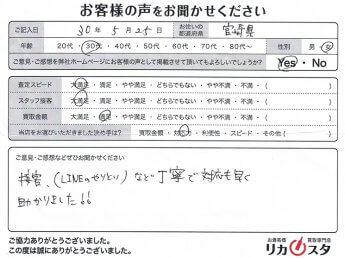 お客様の声をお聞かせください
ご記入日 30年 5月 25日 お住いの都道府県 宮崎県
年齢 20代・30代・40代・50代・60代・70代・80代～ 性別 男・女
ご意見・ご感想を弊社ホームページにお客様の声として掲載させて頂いてもよろしいでしょうか? Yes・No
査定スピード 大満足・満足・やや満足・どちらでもない・やや不満・不満・( )
スタッフ接客 大満足・満足・やや満足・どちらでもない・やや不満・不満・( )
買取金額 大満足・満足・やや満足・どちらでもない・やや不満・不満・( )
当店をお選びいただきました決め手は? 買取金額・対応・利便性・スピード・その他( )
ご意見・ご感想などぜひお聞かせください
接客、(LINEのやりとり)など丁寧で対応も早く
助かりました!!
ご協力ありがとうございました。
この度は誠にありがとうございました。
お酒高価買取専門店
リカスタ